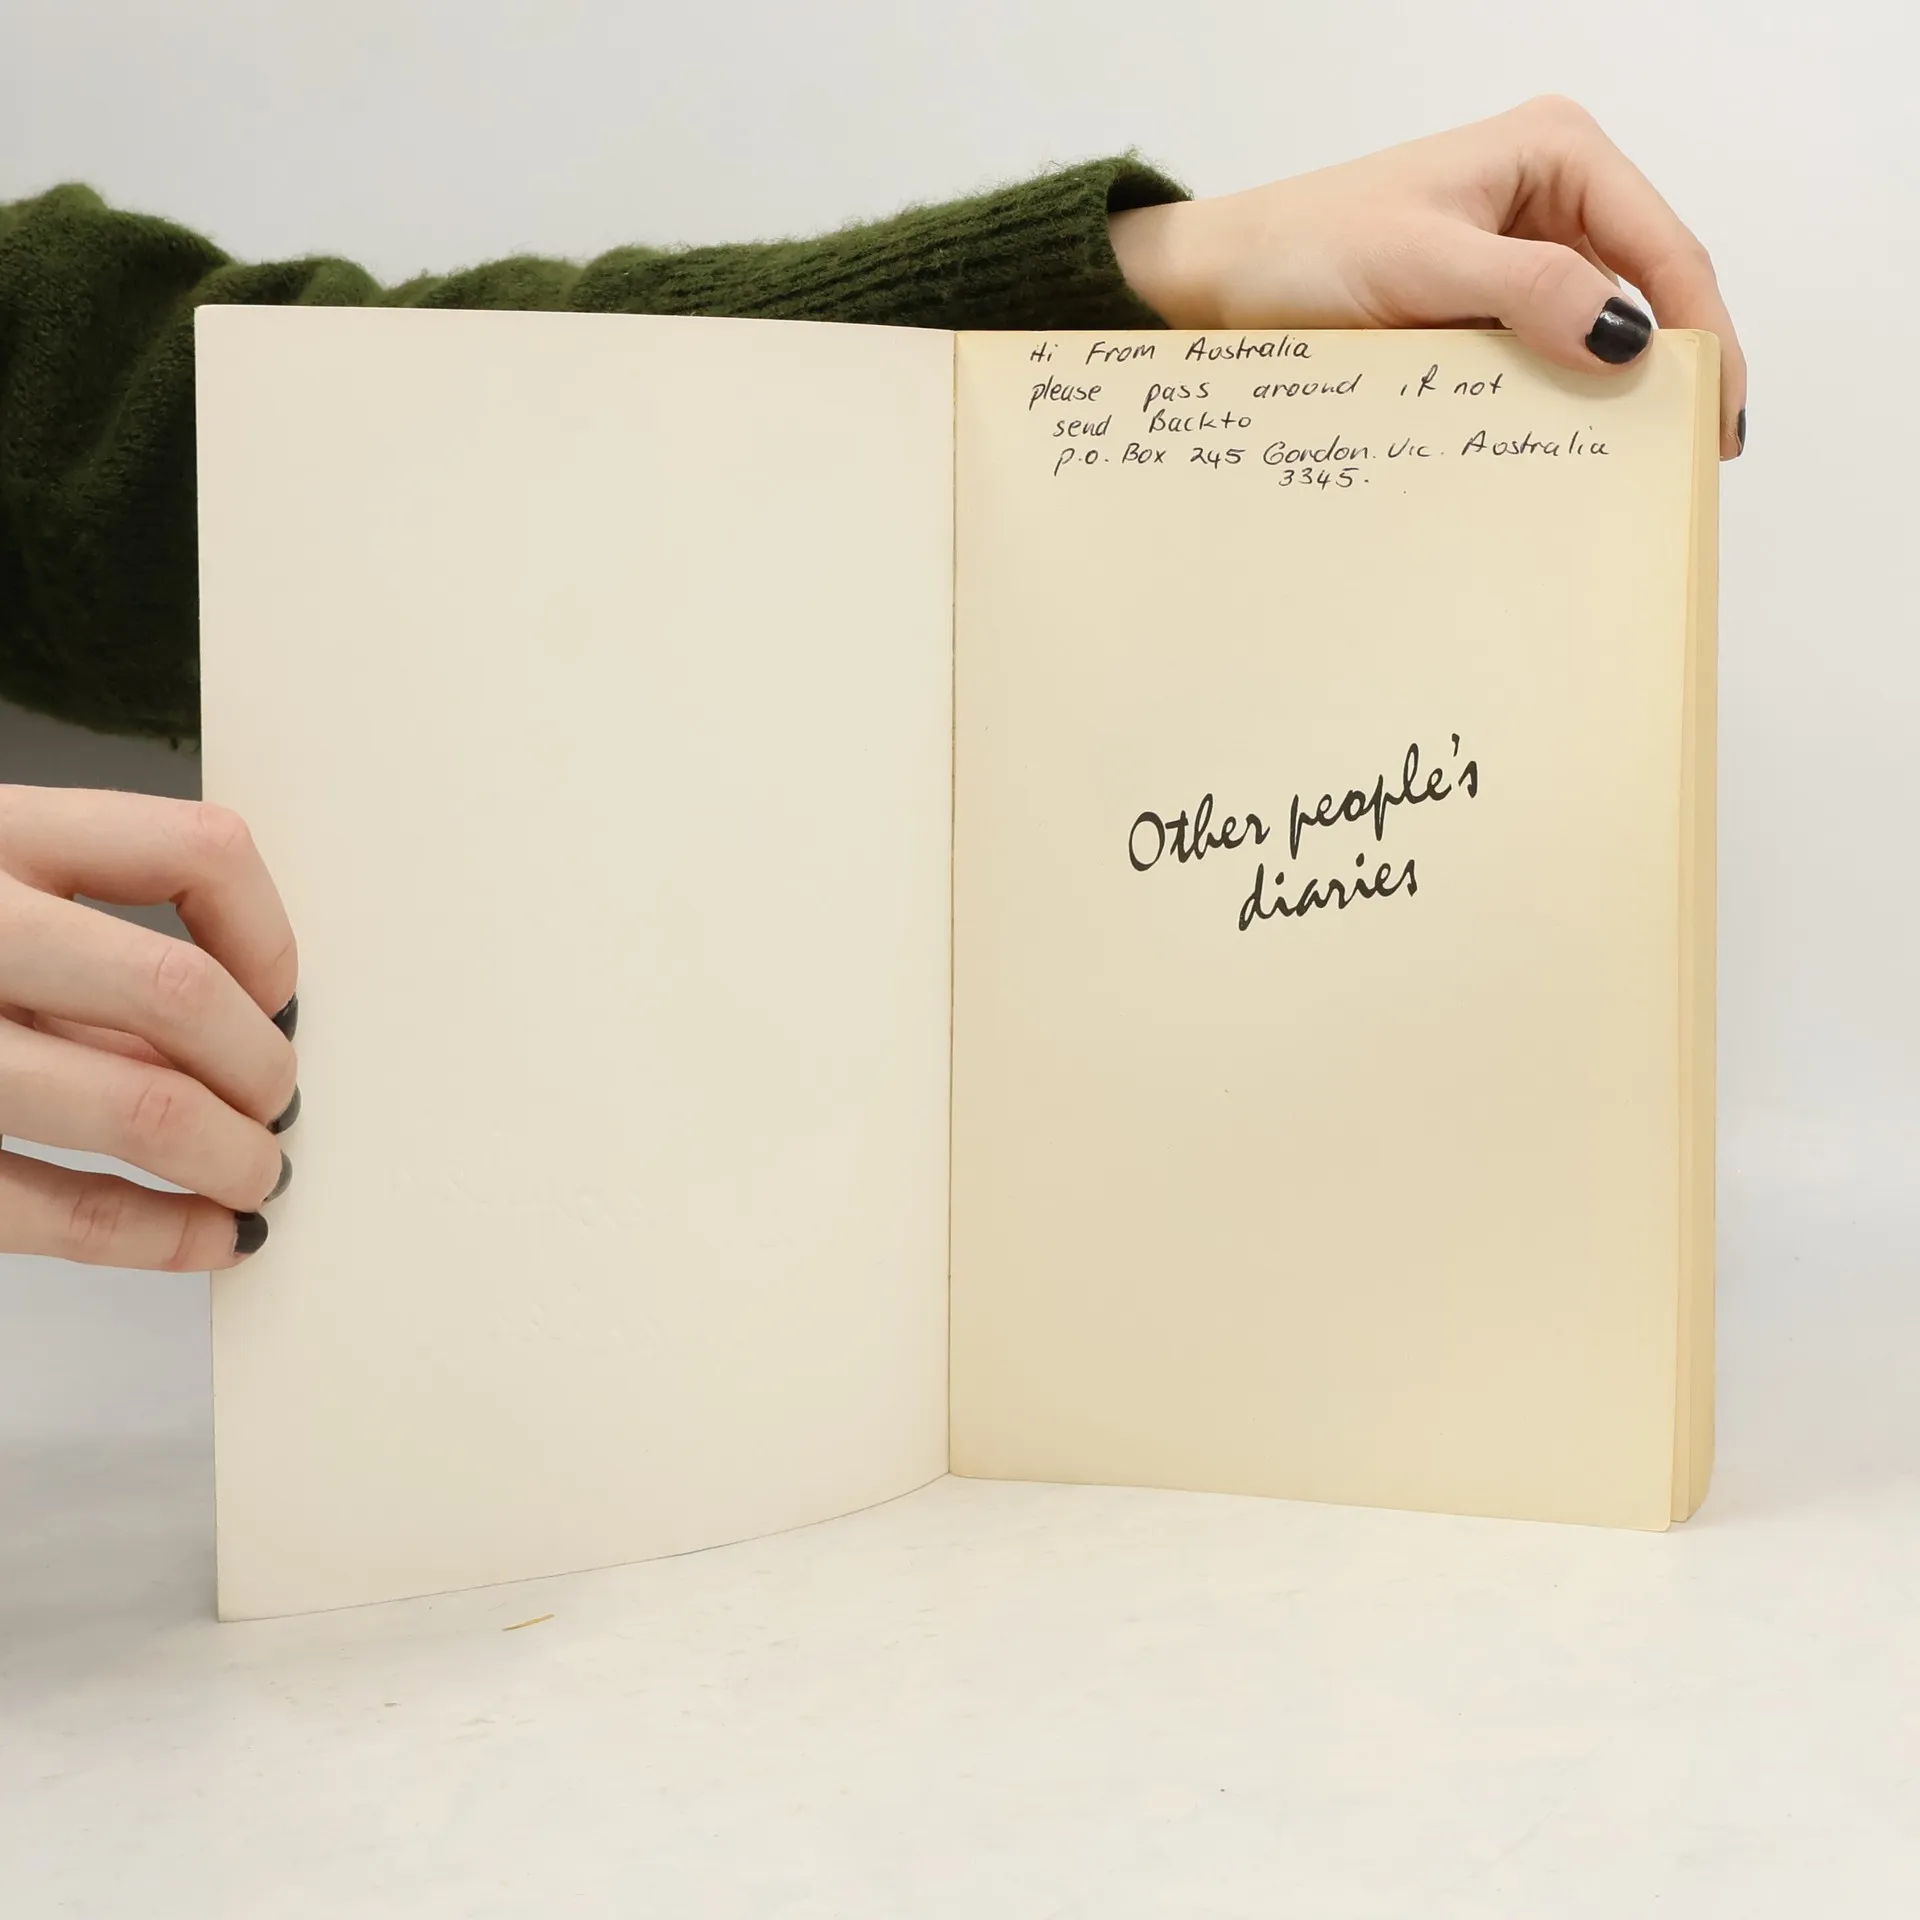 Hi From Australia
please pass around if not
send Back to
P.O. Box 245 Gordon. Vic. Australia
3345.
Other people's
diaries